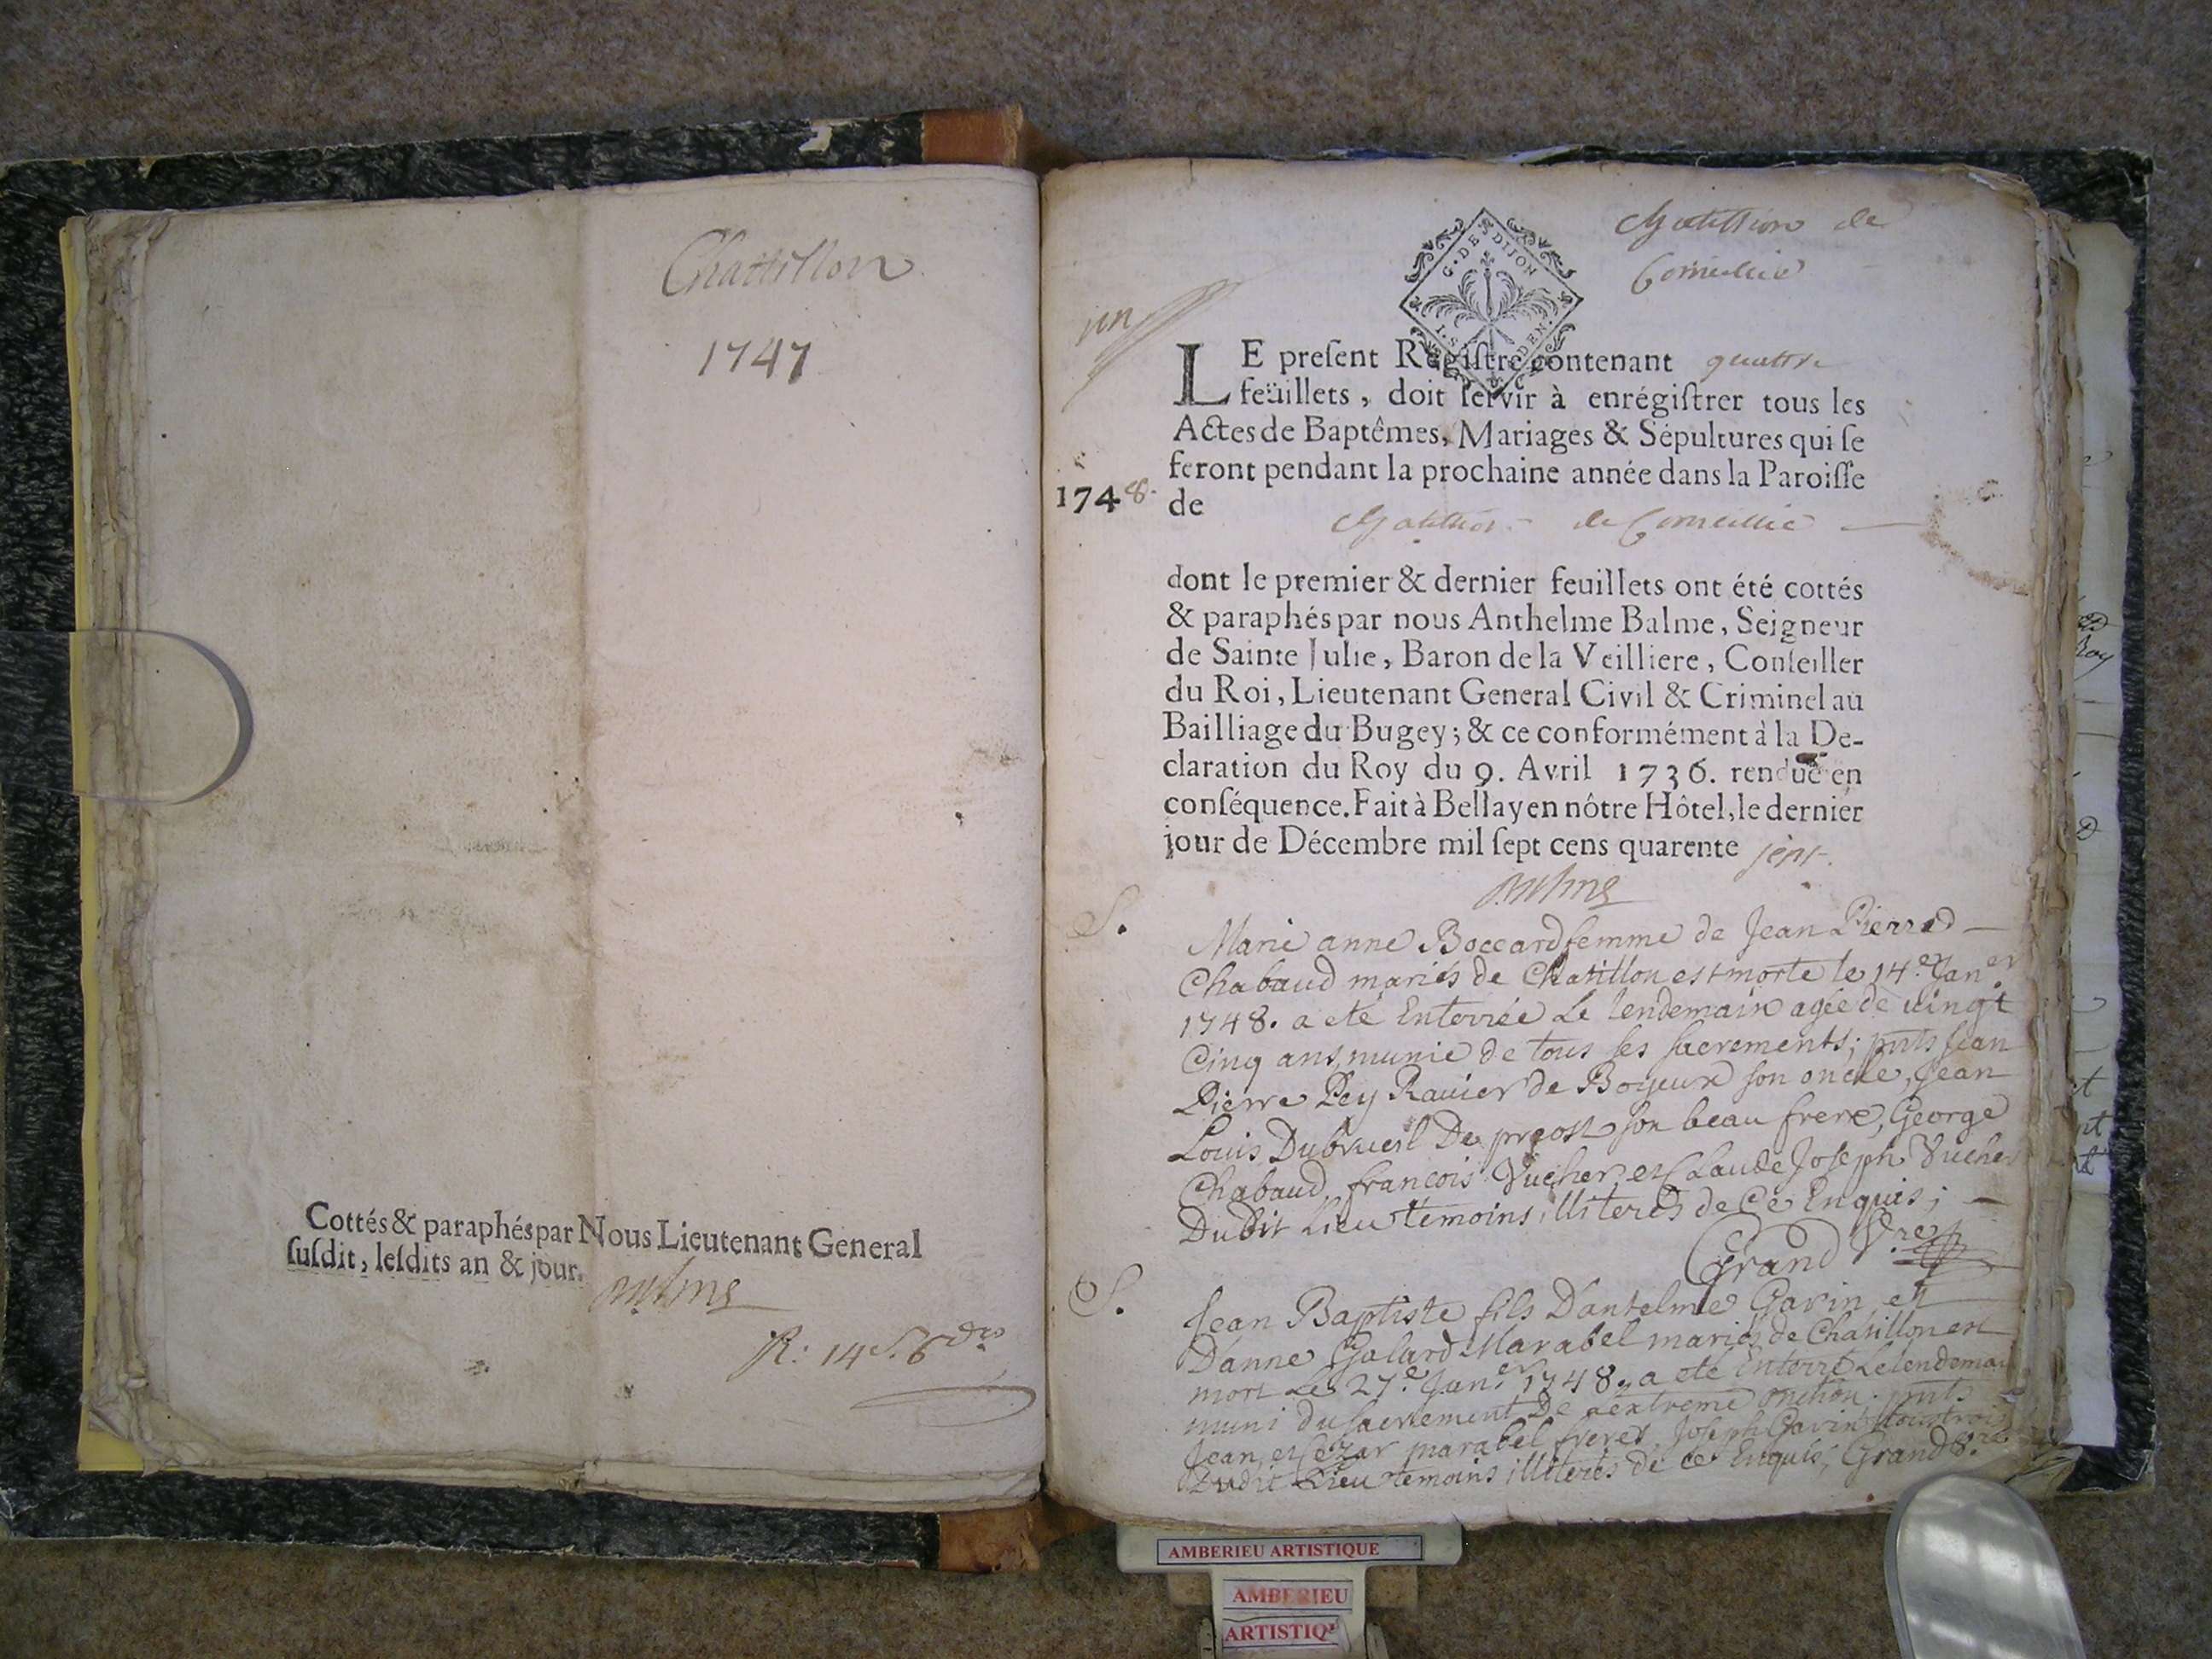 Chattillon
1747
Cottés & paraphés par Nous Lieutenant General
susdit, lesdits an & jour.
R: 14 s. 6 drs
Chatillion de
Corneillie
G. DE DIJON
un
LE present Registre contenant quattre
feüillets, doit servir à enrégistrer tous les
Actes de Baptêmes, Mariages & Sépultures qui se
feront pendant la prochaine année dans la Paroisse
1748. de
Chatillion de Corneillie
dont le premier & dernier feuillets ont été cottés
& paraphés par nous Anthelme Balme, Seigneur
de Sainte Julie, Baron de la Veilliere, Conseiller
du Roi, Lieutenant General Civil & Criminel au
Bailliage du Bugey; & ce conformément à la De-
claration du Roy du 9. Avril 1736. renduë en
conséquence. Fait à Bellay en nôtre Hôtel, le dernier
jour de Décembre mil sept cens quarente sept.
S.
Marie anne Boccard femme de Jean Pierre
Chabaud mariés de Chatillon est morte le 14.e Jan.er
1748. a eté Enterrée Le lendemain agée de vingt
Cinq ans, munie de tous ses sacrements; pnts Jean
Pierre Pey Ravier de Boyeux son oncle, Jean
Louis Dubrueil De proost son beau frere, George
Chabaud, francois Vucher, et Claude Joseph Vucher
Dudit Lieu temoins illiterés de Ce Enquis;
Grand V.re
S.
Jean Baptiste fils D'antelme Gavin et
D'anne Galard Marabel mariés de Chatillon est
mort Le 27.e Jan.er 1748. a eté Enterré Le lendemain
muni du sacrement De L'extreme onction. pnts
Jean, et Cezar marabel freres, Joseph Gavin tous trois
Dudit Lieu temoins illiterés de ce Enquis, Grand
AMBERIEU ARTISTIQUE
AMBERIEU
ARTISTIQ